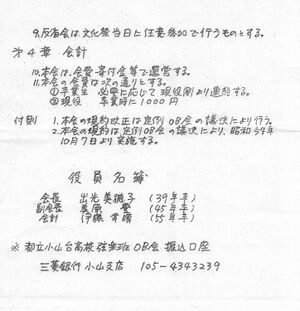 9. 反省会は文化祭当日に任意参加で行うものとする。
第4章 会計
10. 本会は、会費・寄付金等で運営する。
11. 本会の会費は次の通りとする。
① 卒業生 必要に応じて現役側より連絡する。
② 現役 卒業時に1000円
付則 1. 本会の規約改正は定例OB会の議決により行う。
2. 本会の規約は定例OB会の議決により、昭和59年
10月7日より実施する。
役員名簿
会長 出光美穂子 (39年卒)
副会長 (45年卒)
会計 伊藤 (55年卒)
※ 都立小山台高校弦楽班OB会 振込口座
三菱銀行 小山支店 105-4343239